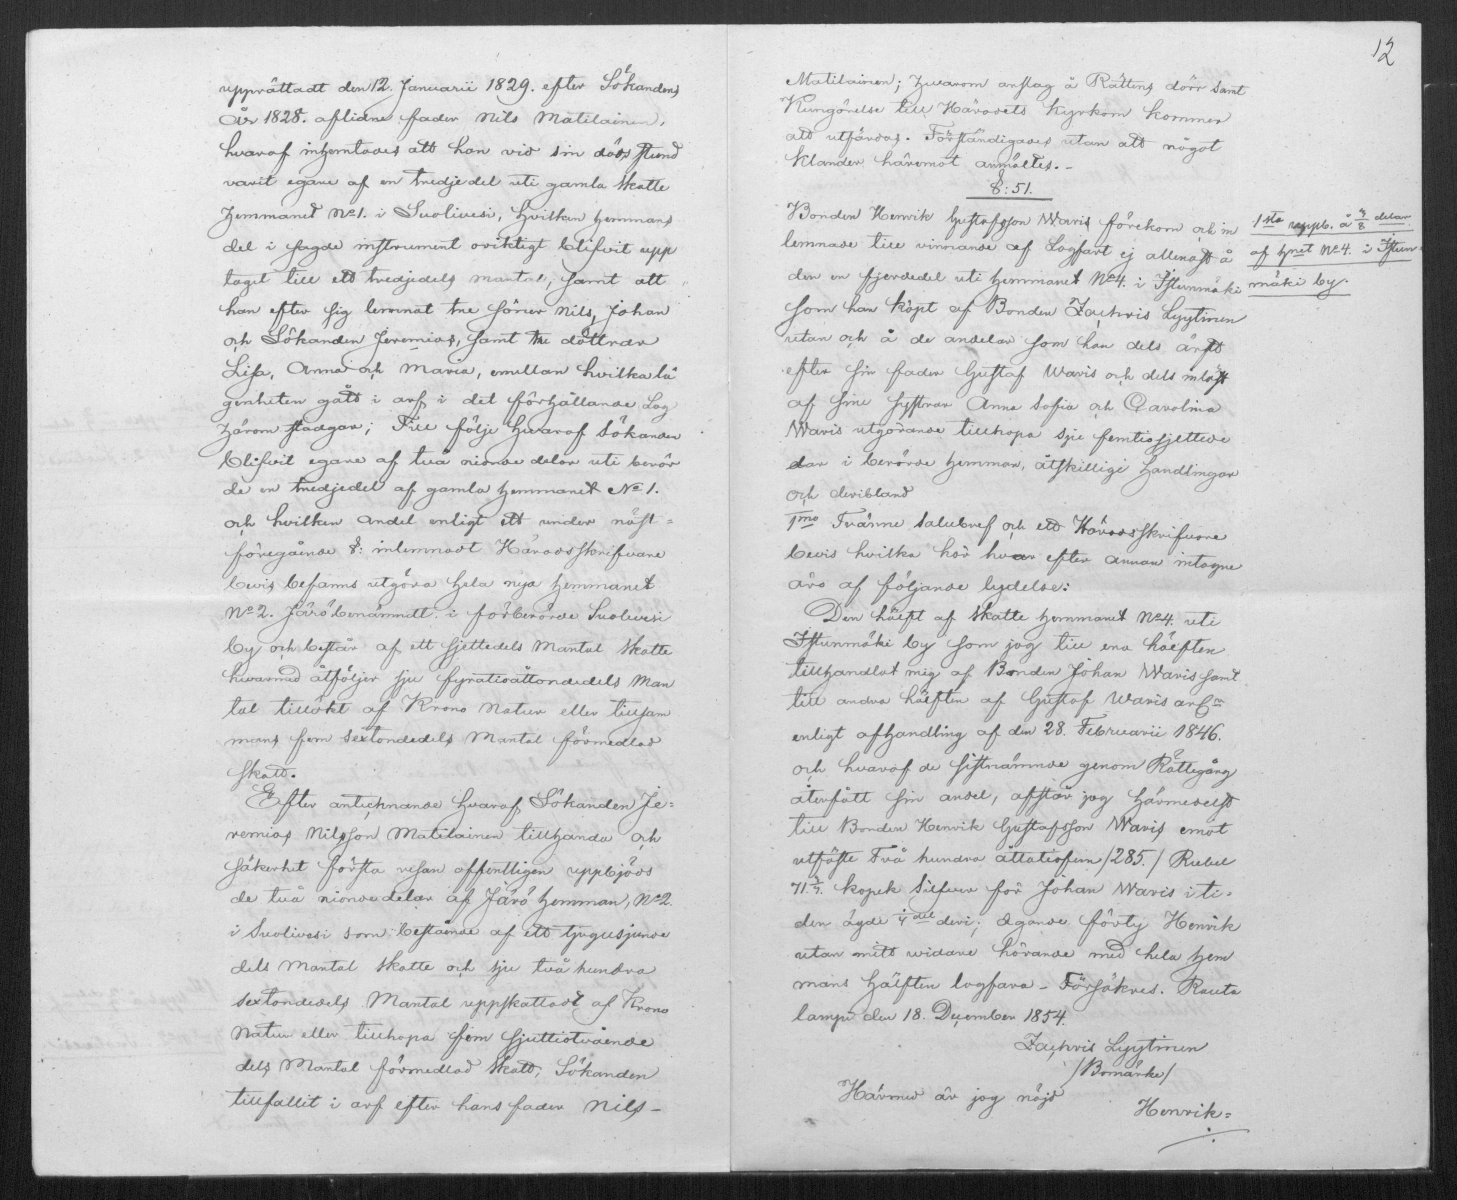 upprättadt den 12. Januarii 1829. efter Sökandens
År 1828. aflidne fader Nils Matilainen,
hvaraf inhemtades att han vid sin dödsstund
varit egare af en tredjedel uti gamla Skatte
Hemmanet No 1. i Suolivesi, hvilken hemmans
del i sagde instrument oriktigt blifvit upp
taget till ett tredjedels mantal, samt att
han efter sig lemnat tre söner Nils, Johan
och Sökanden Jeremias, samt tre döttrar
Lisa, Anna och Maria, emellan hvilka lä
genheten gått i arf i det förhållande Lag
härom stadgar; Till följe hvaraf Sökanden
blifvit egare af två nionde delar uti berör
de en tredjedel af gamla hemmanet No 1.
och hvilken andel enligt ett under näst=
föregående §: inlemnadt Häradsskrifvare
bevis befanns utgöra hela nya hemmanet
No 2. Järö benämndt i förberörde Suolivesi
by och består af ett sjettedels Mantal Skatte
hvarmed åtföljer sju fyratioåttondedels Man
tal tillökt af Krono Natur eller tillsam
mans fem sextondedels Mantal förmedlad
skatt.
Efter antecknande hvaraf Sökanden Je=
remias Nilsson Matilainen tillhanda och
säkerhet första resan offentligen uppbjöds
de två nionde delar af Järö hemman, No 2.
i Suolivesi som bestående af ett tjugusjunde
dels Mantal Skatte och sju två hundra
sextondedels Mantal uppskattadt af Krono
Natur eller tillhopa fem sjuttiotvående
dels Mantal förmedlad Skatt, Sökanden
tillfallit i arf efter hans fader Nils-
12
Matilainen; hvarom anslag å Rättens dörr samt
Kungörelse till Häradets kyrkor kommer
att utfärdas. Förständigades utan att något
Klander häremot anmältes.-
§: 51.
Bonden Henrik Gustafsson Waris förekom och in
lemnade till vinnande af Lagfart ej allenast å
den en fjerdedel uti hemmanet No 4. i Istunmäki
som han köpt af Bonden Zachris Lyytinen
utan och å de andelar som han dels ärft
efter sin fader Gustaf Waris och dels inlöst
af sine systrar Anna Sofia och Carolina
Waris utgörande tillhopa sju femtiosjettede
lar i berörde hemman, åtskillige handlingar
och deribland
1mo Tvänne salubref och ett Häradsskrifvare
bevis hvilka här hvar efter annan intagne
äro af följande lydelse:
Den hälft af Skatte hemmanet No 4. uti
Istunmäki by som jag till ena hälften
tillhandlat mig af Bonden Johan Waris samt
till andra hälften af Gustaf Waris arfr
enligt afhandling af den 28. Februarii 1846.
och hvaraf de sistnämnde genom Rättegång
återfått sin andel, afstår jag härmedelst
till Bonden Henrik Gustafsson Waris emot
utfäste Två hundra åttatiofem /285./ Rubel
71 3/7. kopek Silfver för Johan Waris i ti=
den ägde 1/4 del deri; ägande förty Henrik
utan mitt widare hörande med hela hem
mans hälften lagfara - Försäkras. Rauta
lampi den 18. December 1854.
Zachris Lyytinen
/Bomärke/
Härmed är jag nöjd
Henrik=
1sta uppb. å 3/8 delar
af hmet No 4. i Istun=
mäki by.